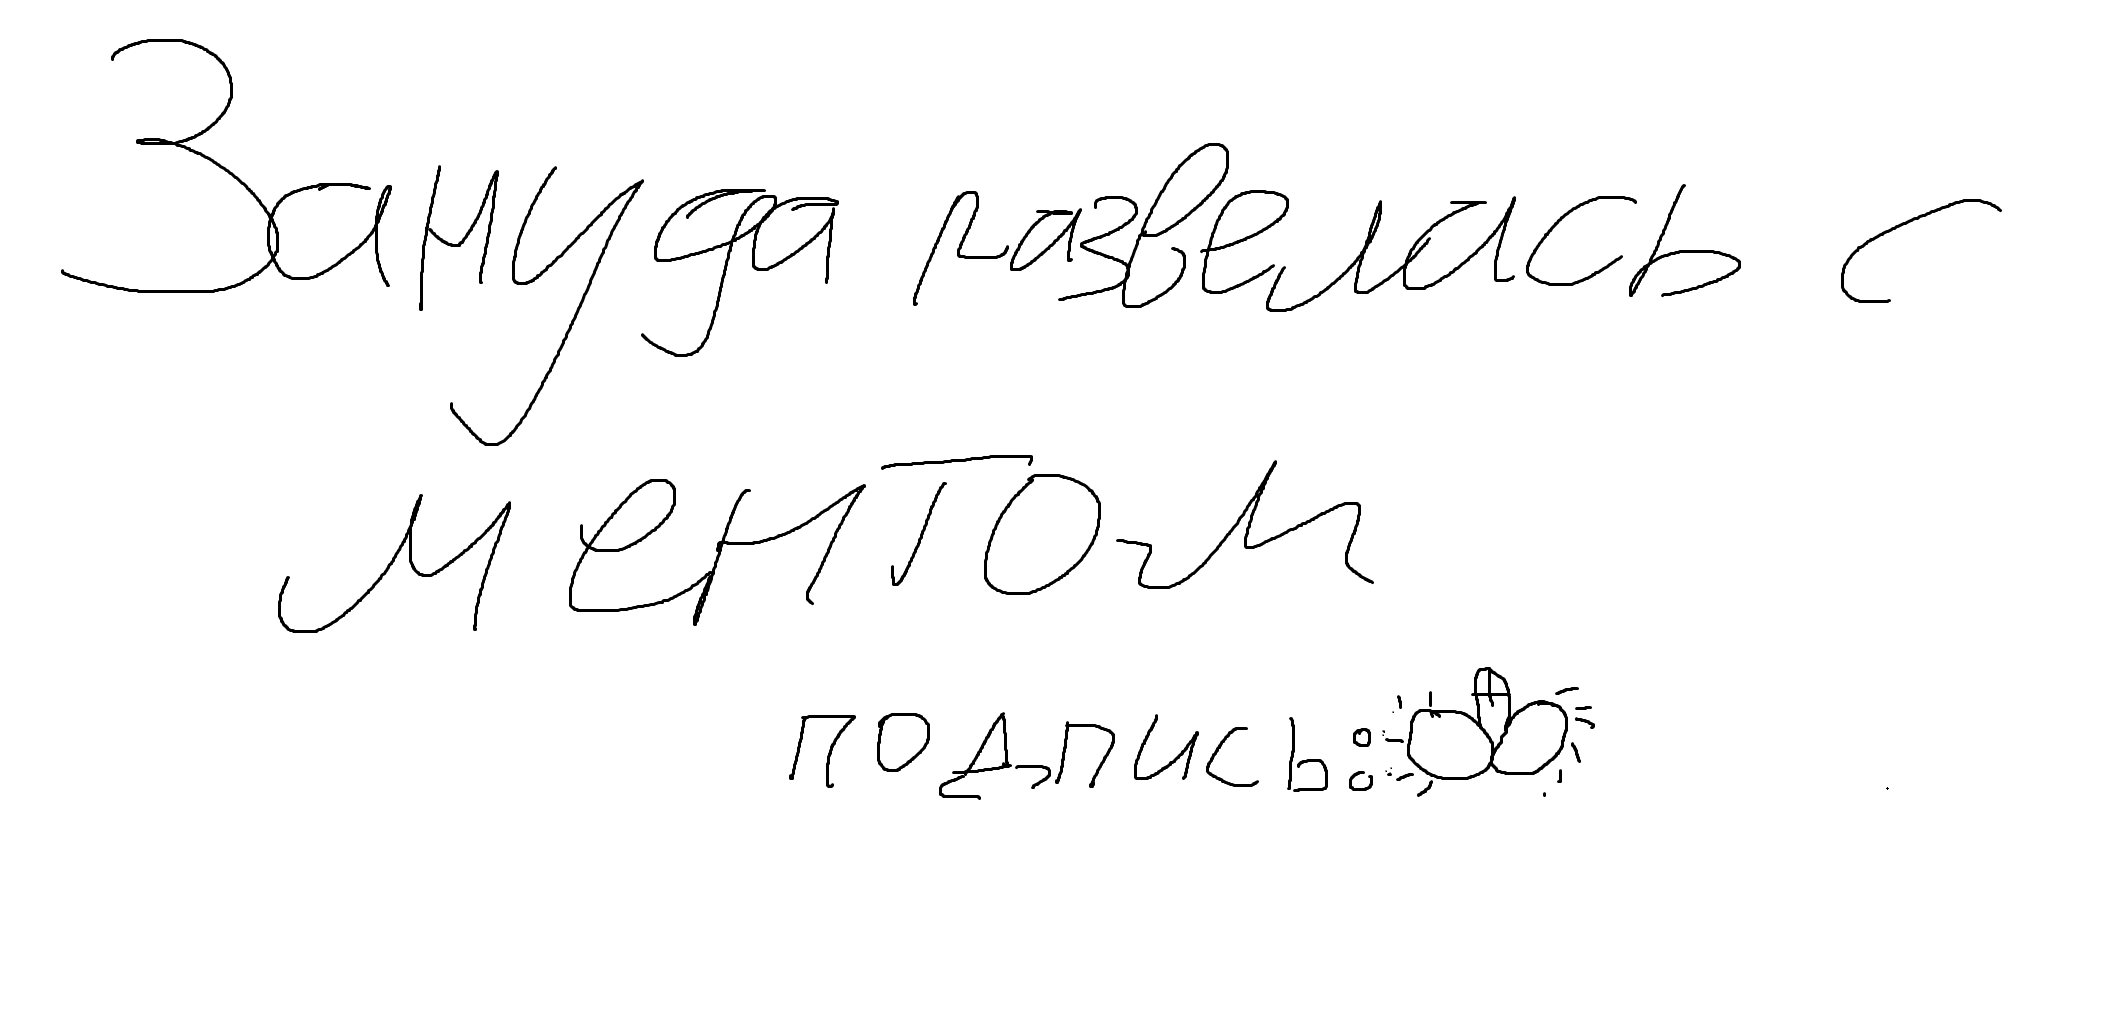 Зануда развелась с
ментом
подпись: